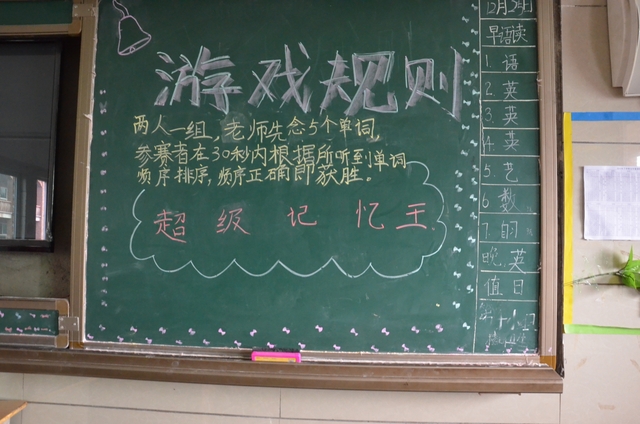 游戏规则
两人一组,老师先念5个单词,
参赛者在30秒内根据所听到单词
顺序排序,顺序正确即获胜。
超级记忆王
12月24日
早语读
1. 语
2. 英
3. 英
4. 英
5. 艺
6. 数
7. 自习
晚. 英
值日